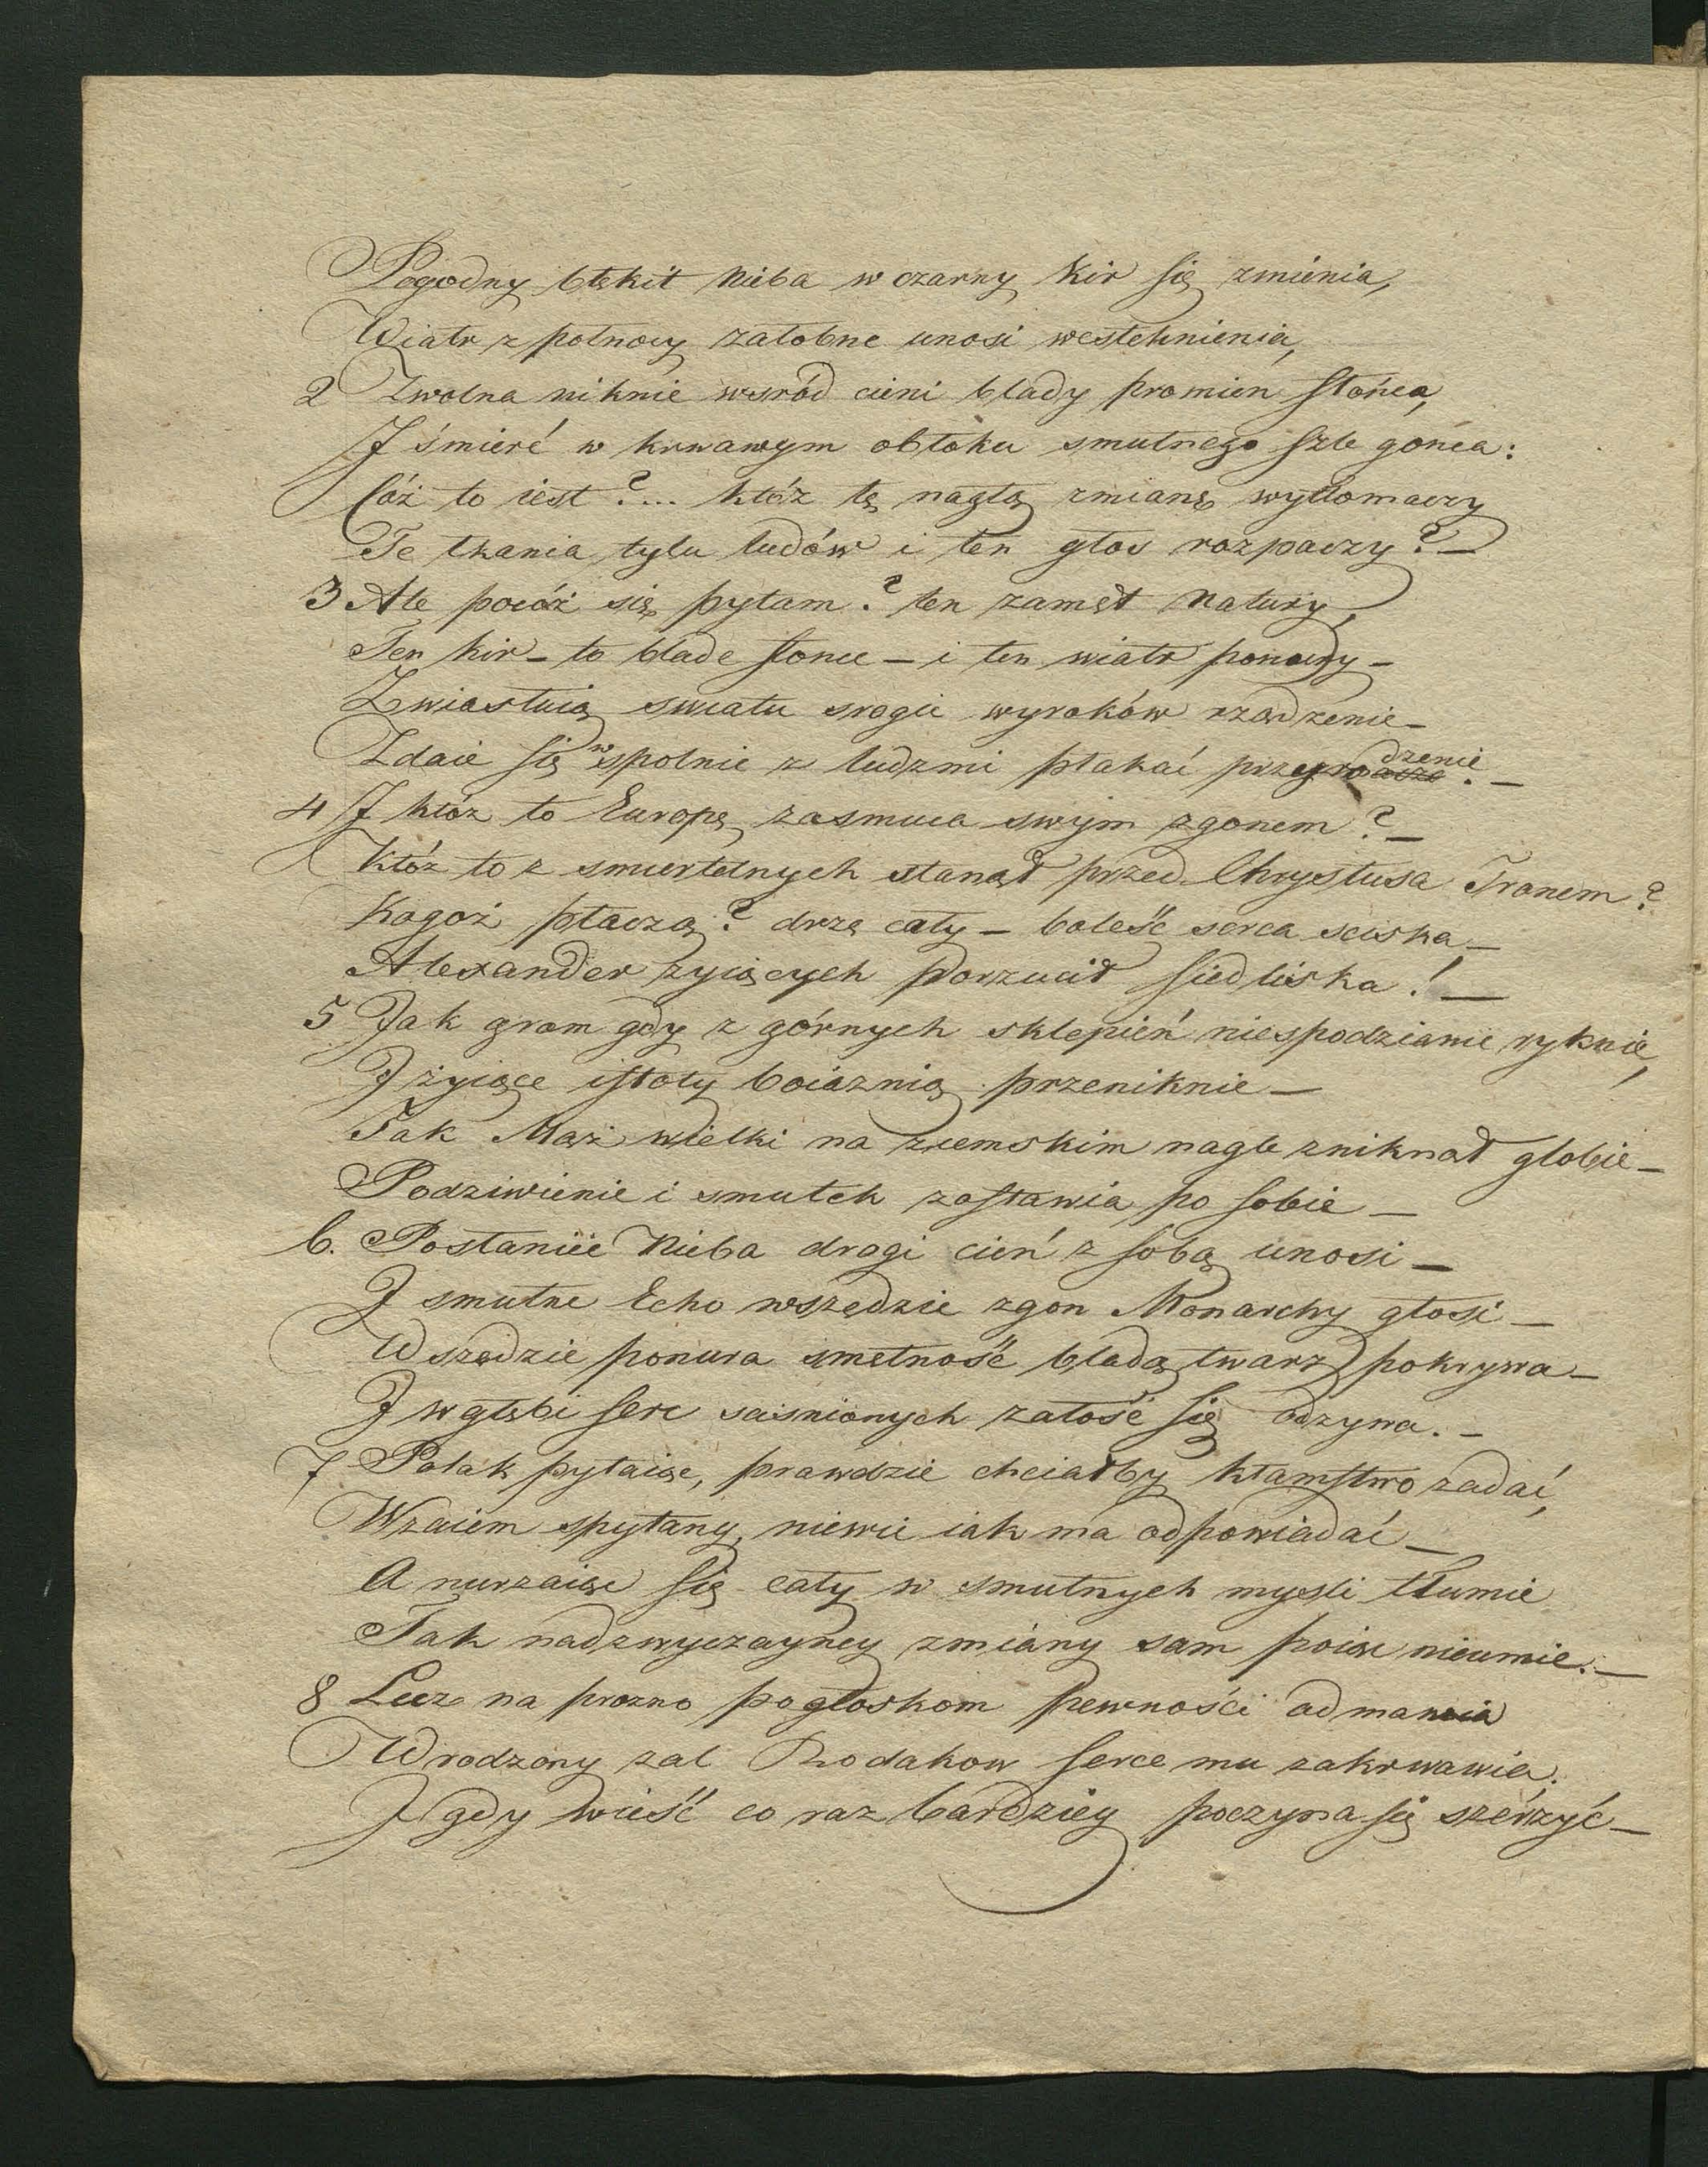 Pogodny błękit Nieba w czarny Kir się zmienia,
Wiatr z połnocy załobne unosi westchnienia,
2 Zwolna niknie wsród cieni blady promien słońca,
I śmierć w krwawym obłoku smutnego szle gońca:
Cóż to iest?.... któż tę nagłą zmianę wytłomaczy
Te łkania tylu ludów i ten głos rozpaczy? –
3 Ale pocóż się pytam? ten zamęt Natury,
Ten kir – to blade słonce – i ten wiatr ponury –
Zwiastuią swiatu srogie wyroków rządzenie –
Zdaie się wspolnie z ludzmi płakać przyrodzenie. –
4 I któż to Europę zasmuca swym zgonem? –
Któż to z smiertelnych stanął przed Chrystusa Tronem?
Kogoż płaczą? drzę cały – boleść serca sciska –
Alexander zyiących porzucił siedliska! –
5 Jak grom gdy z górnych sklepień niespodzianie ryknie,
I żyiące istoty boiaznią przeniknie –
Tak Mąż wielki na ziemskim nagle zniknął globie –
Podziwienie i smutek zostawia po sobie –
6. Posłaniec Nieba drogi cień z sobą unosi –
I smutne Echo wszędzie zgon Monarchy głosi –
Wszędzie ponura smętność bladą twarz pokrywa –
I w głębi serc scisnionych załość się odzywa. –
7 Polak pytaiąc, prawdzie chciałby kłamstwo zadać,
Wzaiem spytany, niewie iak ma odpowiadać –
A nurzaiąc się cały w smutnych mysli tłumie
Tak nadzwyczayney zmiany sam poiąc nieumie. –
8 Lecz na prozno pogłoskom pewności odmawia
Wrodzony zal Rodakow serce mu zakrwawia.
I gdy wieść co raz bardziey poczyna się szérzyć –